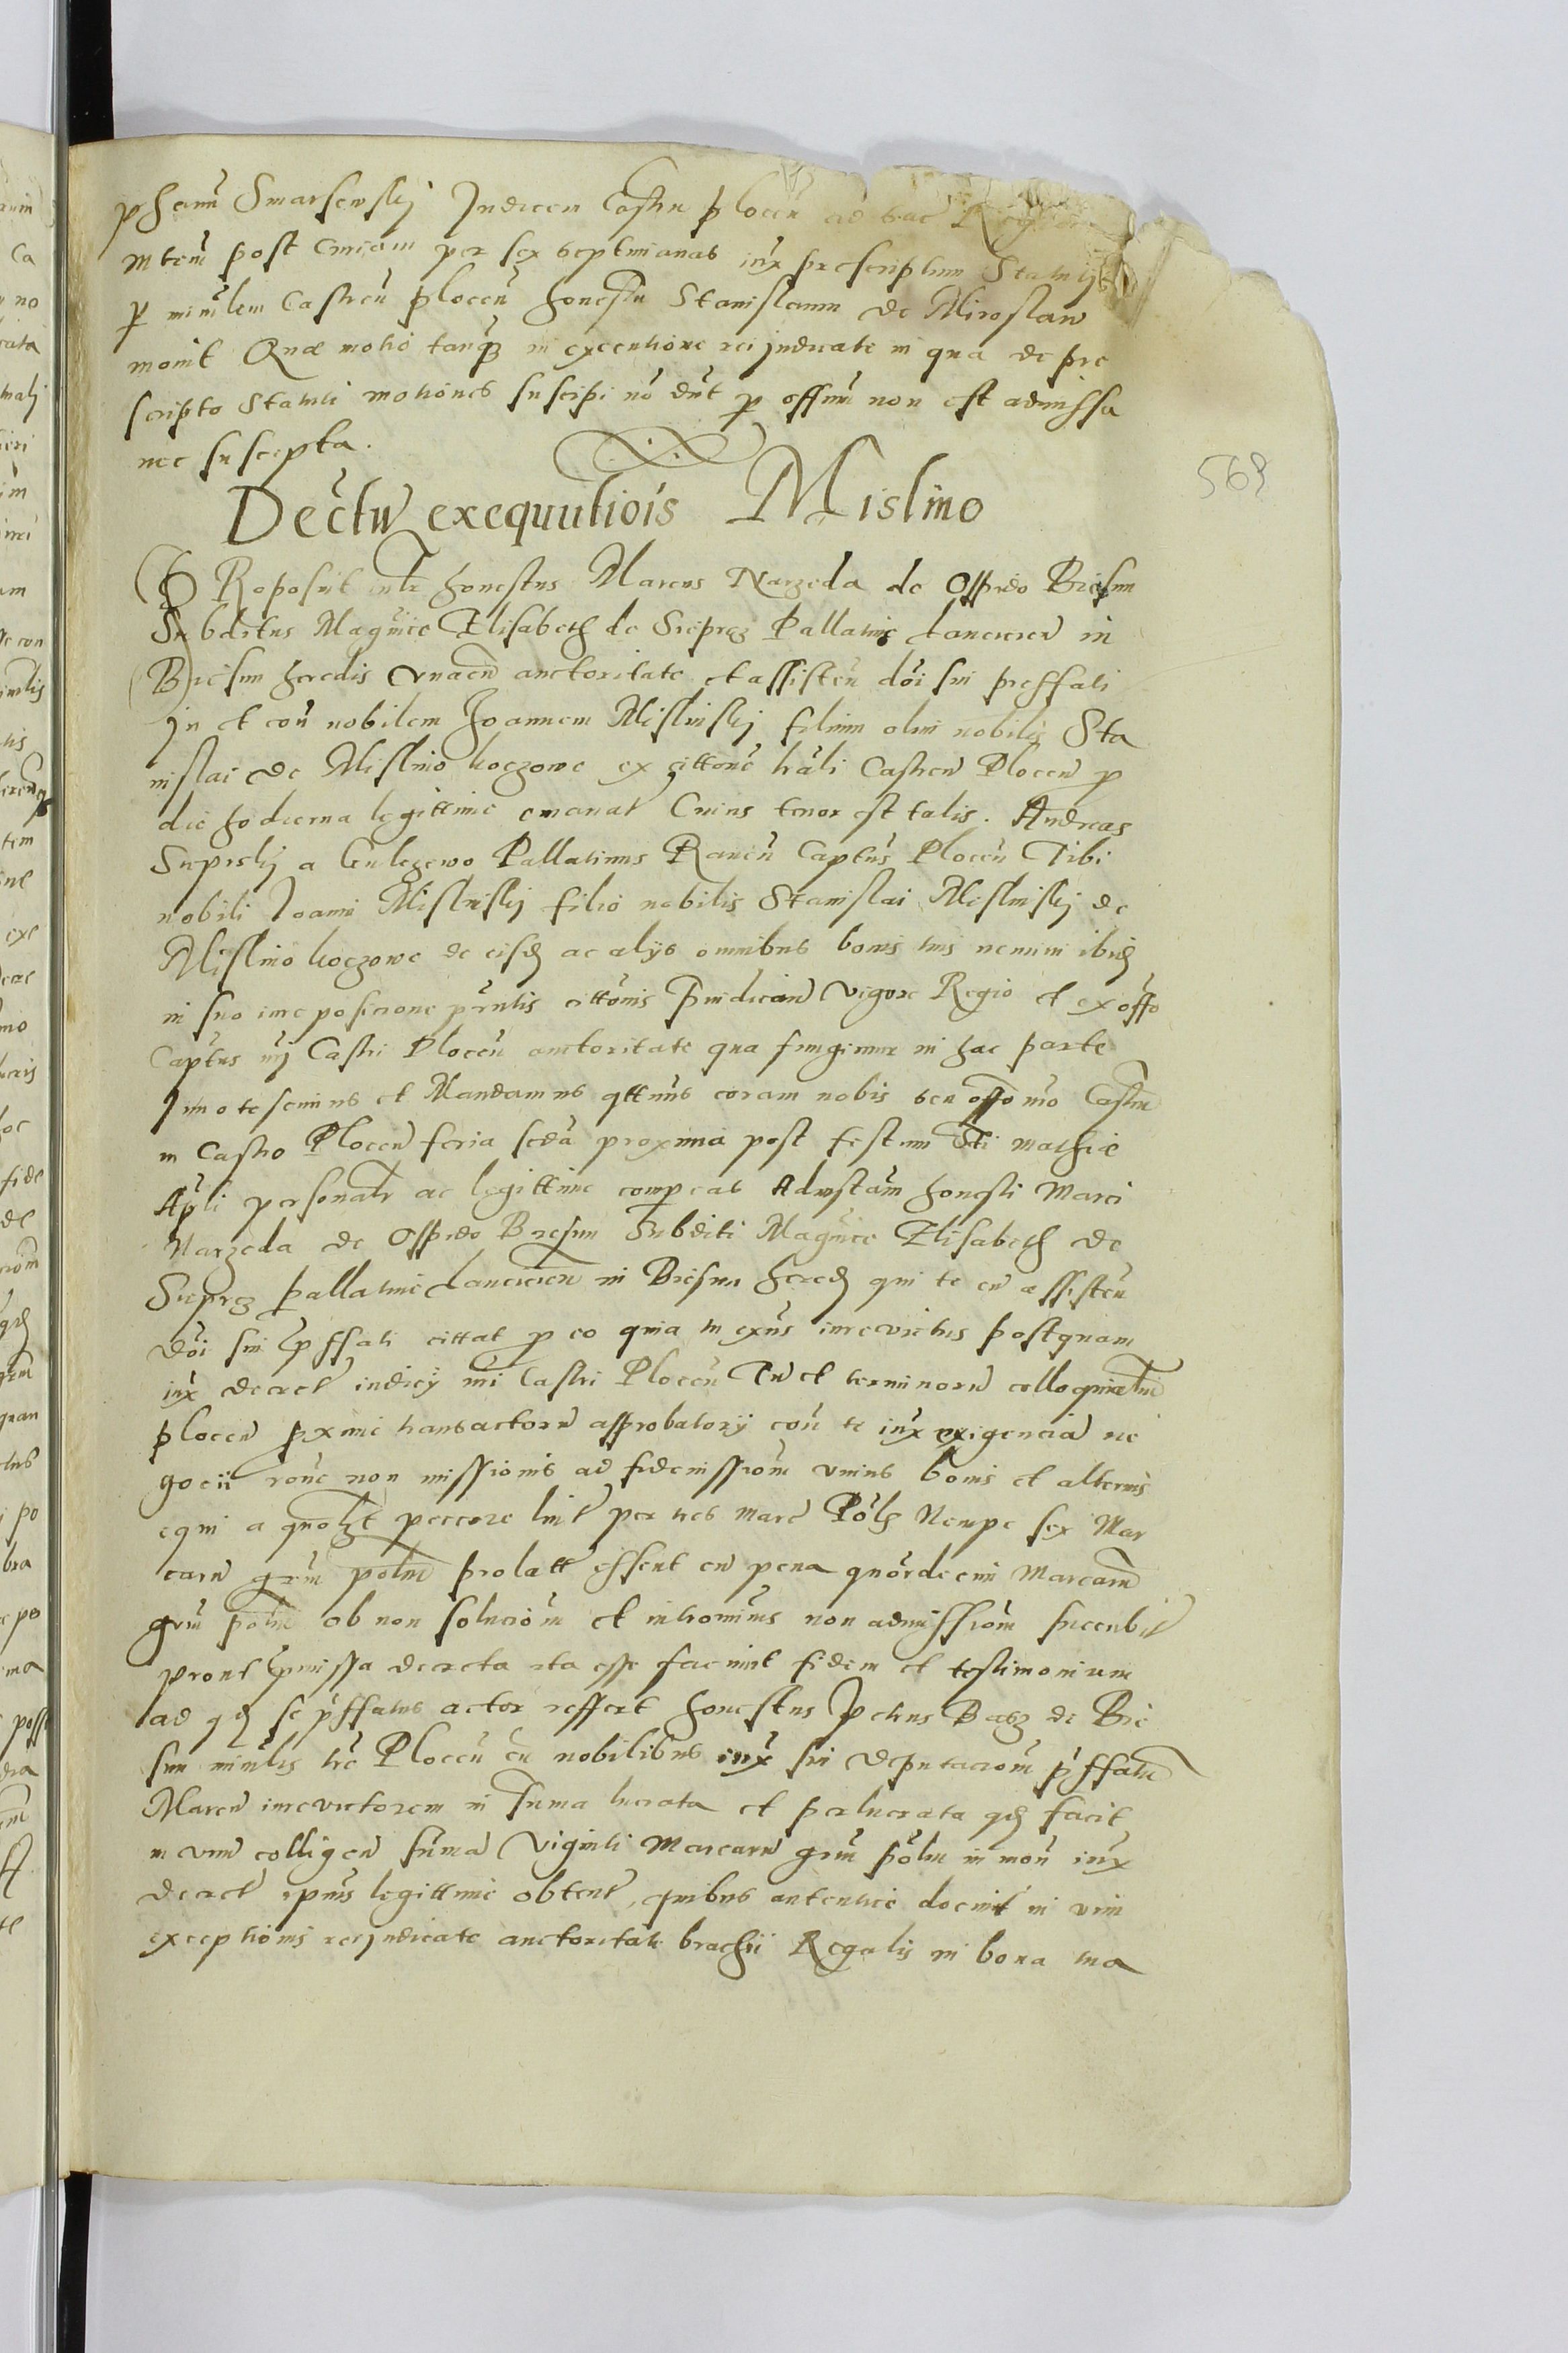 Smarsewskij Judicem Castrn plocen ad hac
post per sex septimanas iux prescriptum Statutj
p Castren plocen honestu Stanislaum de Miroslaw
monit Quæ motio tanq in executione rei judicate in qua de pre
scripto Statuti motiones suscipi nō dnt p offium non est admissa
nec suscepta.
569
Dectu exequutiois Mislino
PRoposuit honestus Marcus Narzeda de Oppido Biesun
Subditus Magnice Elisabeth de Sieprcz Pallatine Lancicien in
Biesun heredis vnacu auctoritate et assisten doi sui preffati
in et con nobilem Joannem Mislinskij filium olim nobilis Sta
nislai de Mislino koczowe ex cittone Castren Plocen p
die hodierna legittime emanat Cuius tenor est talis. Andreas
Sieprskij a Gulczewo Pallatinus Raven Captus Plocen Tibi
nobili Joanni Mislinskij filio nobilis Stanislai Mislinskij de
Mislino koczowe de eisd ac alijs omnibus bonis tuis nemini ibid
in suo iure posicione pntis cittonis vigore Regio et ex offo
Captus nrj Castri Plocen auctoritate qua fungimur in hac parte
Jnnotescimus et Mandamus qttnus coram nobis seu offo nro Castrn
in Castro Plocen feria secda proxima post festum Sti mathie
Apli personatr ac legittime compeas Ad instam honesti Marci
Narzeda de Oppido Biesun Subditi Magnice Elisabeth de
Sieprcz pallatine Lancicien in Biesun hered qui te cu assisten
doi sui pffati cittat p eo quia tu exns iurevictus postquam
iux decret iudicij nri Castri Plocen Tu et terminoru colloquialiu
plocen pxime transactoru approbatorij con te iux exigencia ne
gocii rone non missionis ad fidemissiom vnius bovis et alterius
equi a quolzt peccore per tres marc Polz Nempe sex Mar
caru grm polm prolatt essent cu pena quordecim Marcaru
grm polm ob non soluciom et intromiss non admissiom succubit
prout pmissa decreta ita esse faciunt fidem et testimonium
ad qd se pffatus actor reffert honestus Petrus Basz de Bie
sun Plocen cu nobilibus iux sui deputaciom pffatu
Marcu iurevictorem in suma lucrata et perlucrata qd facit
in vnu colligen suma viginti Marcaru grm polm in mon iux
decret ipius legittime obtent, quibus autentice docuit in vim
exceptionis rei judicate auctoritate brachii Regalis in bona tua